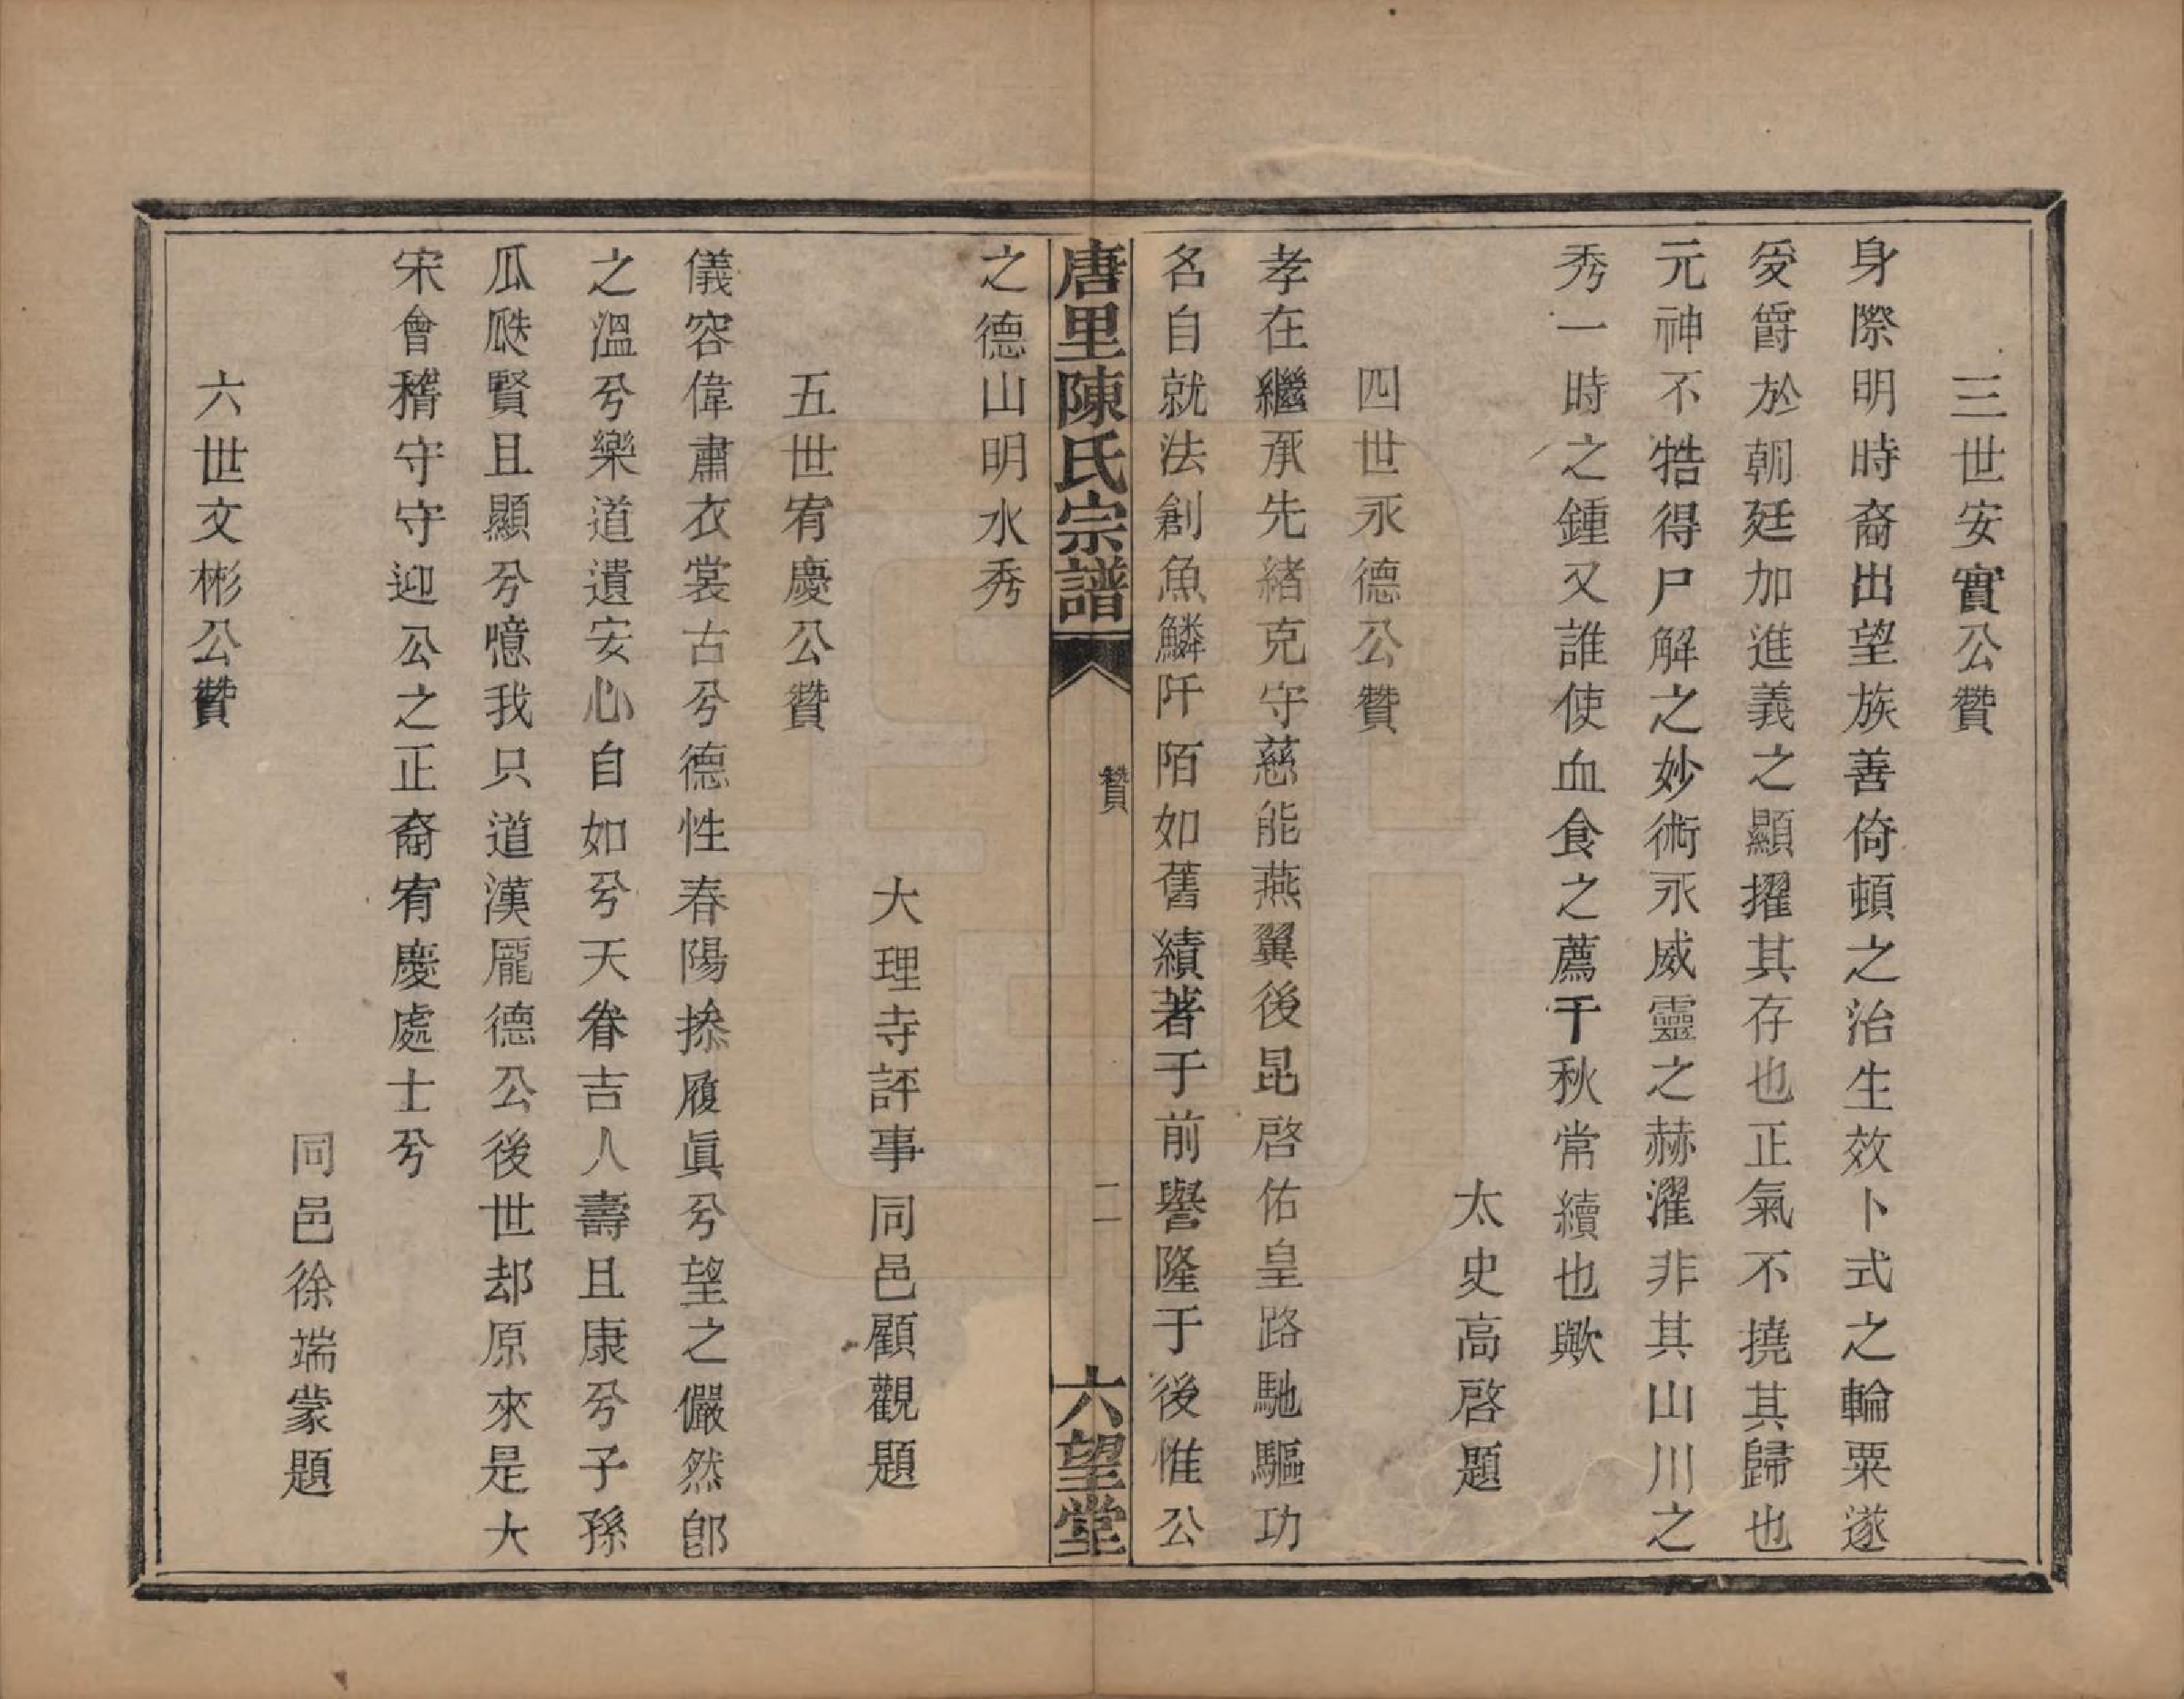 三世安實公贊
身際明時裔出望族善倚頓之治生效卜式之輸粟遂
爰爵於朝廷加進義之顯擢其存也正氣不撓其歸也
元神不牿得尸解之妙術永威靈之赫濯非其山川之
秀一時之鍾又誰使血食之薦千秋常續也歟
太史高啓題
四世永德公贊
孝在繼承先緒克守慈能燕翼後昆啓佑皇路馳驅功
名自就法創魚鱗阡陌如舊績著于前譽隆于後惟公
唐里陳氏宗譜
贊
二
六望堂
之德山明水秀
五世宥慶公贊
大理寺評事同邑顧觀題
儀容偉肅衣裳古兮德性春陽操履眞兮望之儼然卽
之溫兮樂道遺安心自如兮天眷吉人壽且康兮子孫
瓜瓞賢且顯兮噫我只道漢龎德公後世却原來是大
宋會稽守守迎公之正裔宥慶處士兮
同邑徐端蒙題
六世文彬公贊